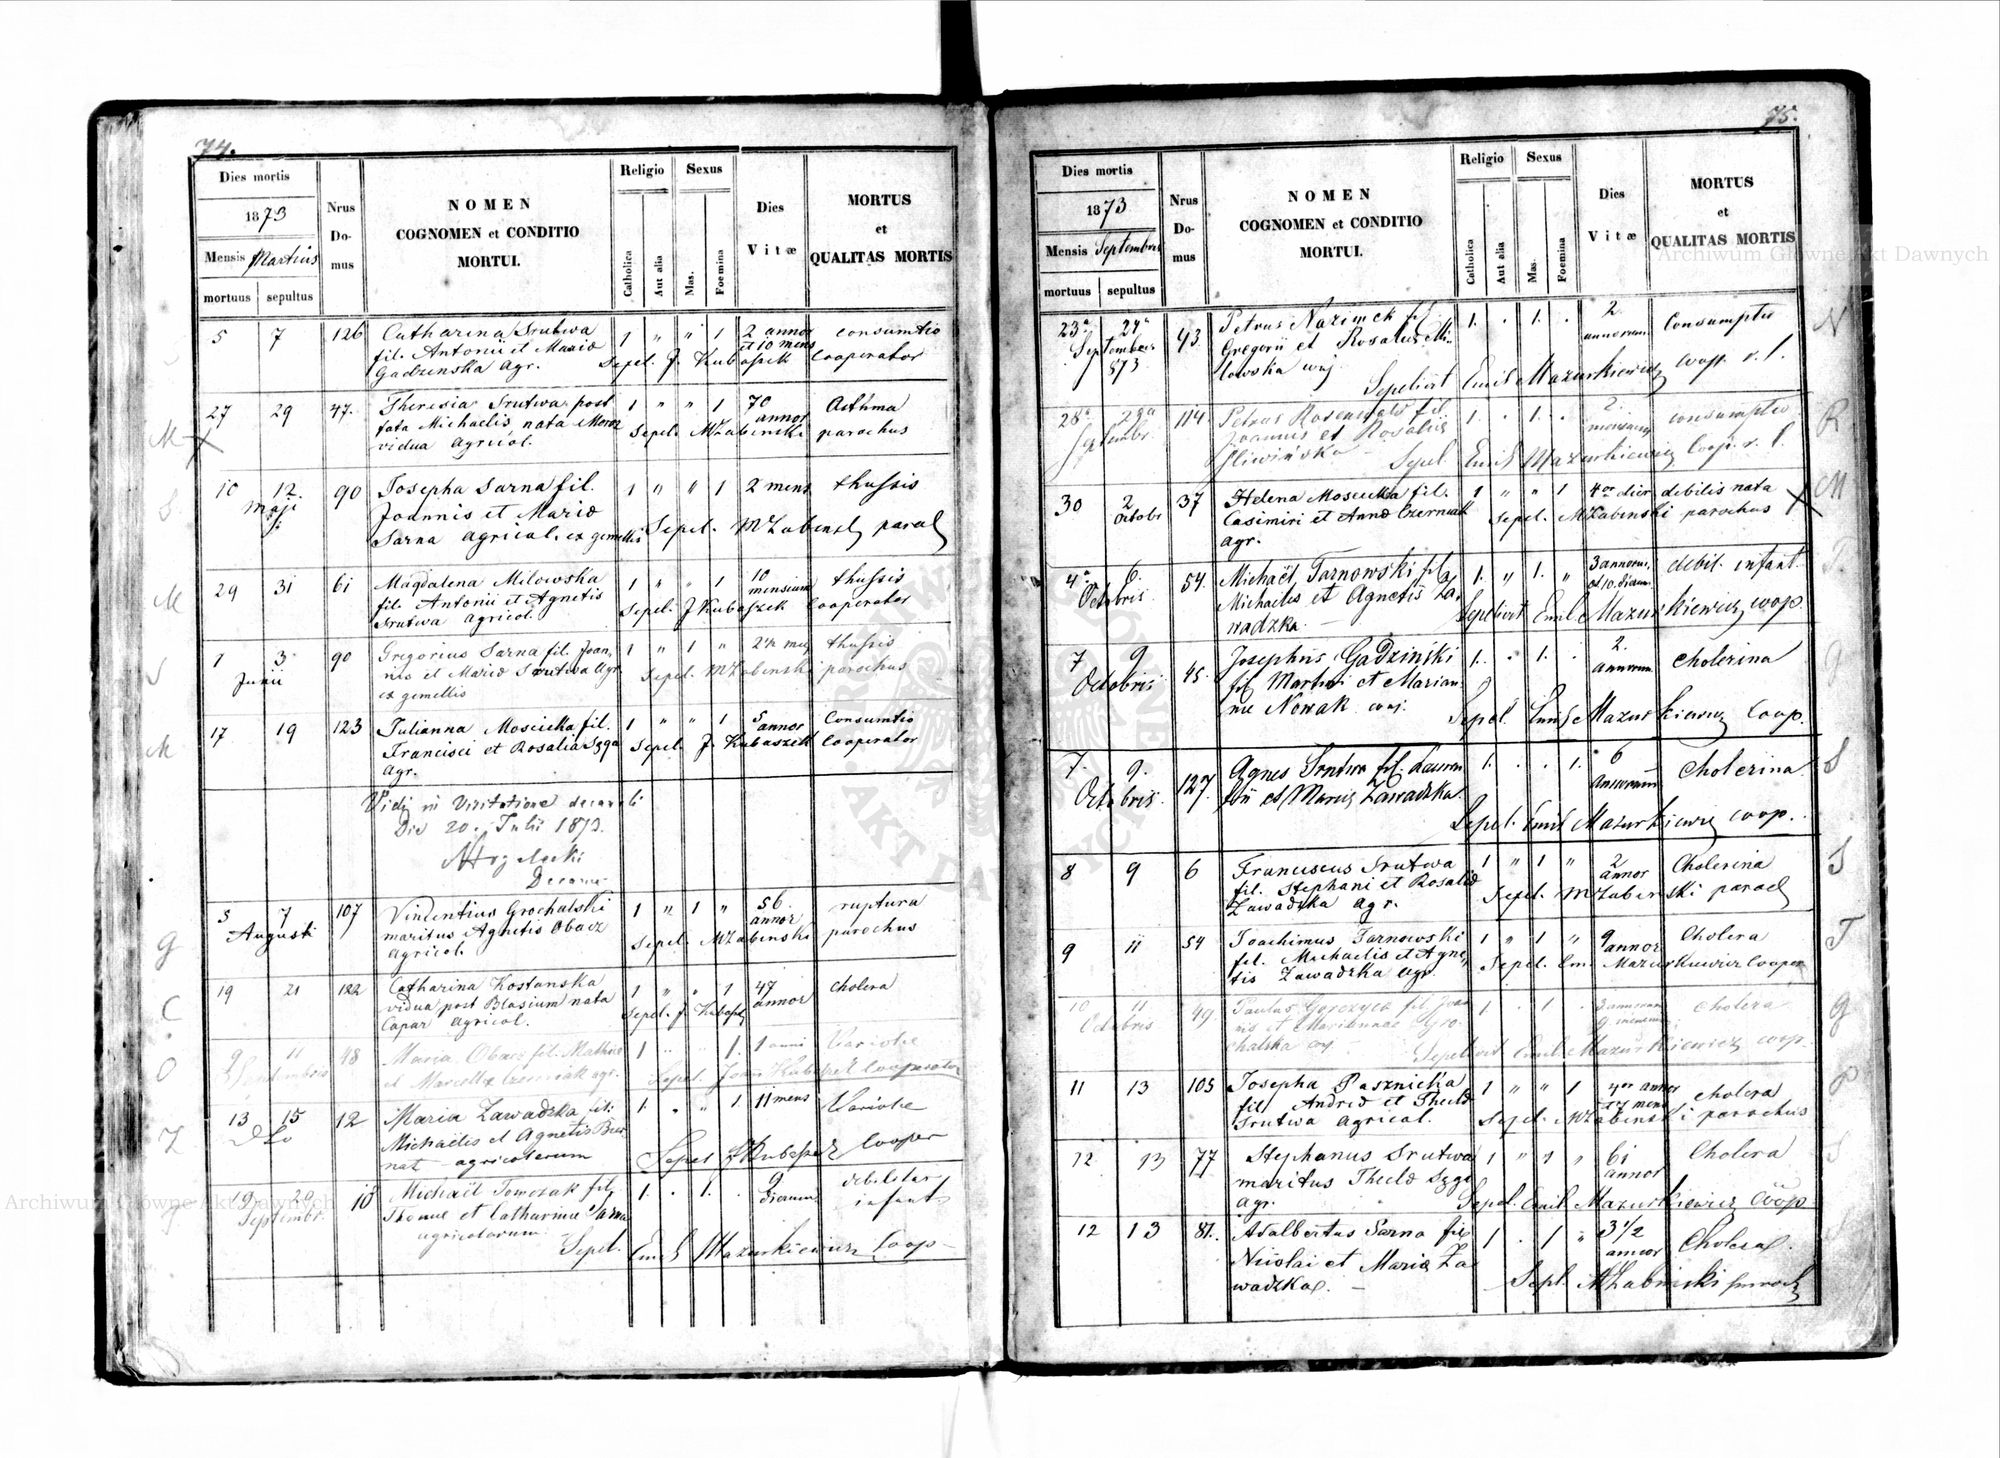 74.
Dies mortis
1873
Mensis Martius
mortuus sepultus
Nrus Do-mus
NOMEN
COGNOMEN et CONDITIO
MORTUI.
Religio
Catholica
Aut alia
Sexus
Mas.
Foemina
Dies
Vitæ
MORTUS
et
QUALITAS MORTIS
5 7 126 Catharina Srutwa 1 " " 1 2 annor consumtio
fil. Antonii et Mariæ et 10 mens
Gadzinska Agr. Sepel. J. Kubaszek Cooperator
M
27 29 47. Theresia Srutwa post 1 " " 1 70 annor Asthma
fata Michaelis nata Moroz Sepel. MŻabinski parochus
vidua agricol.
S
10 12. 90 Josepha Sarna fil. 1 " " 1 2 mens thussis
Maji Joannis et Mariæ
Sarna agricol. ex gemellis Sepel. MŻabinski paroch
M
29 31 61 Magdalena Milowska 1 " " 1 10 mensium thussis
fil. Antonii et Agnetis Sepel. J Kubaszek Cooperator
Srutwa agricol.
S
1 3 90 Gregorius Sarna fil. Joan, 1 " 1 " thussis
Junii nis et Mariæ Srutwa Agr. Sepel. MŻabinski parochus
ex gemellis
M
17 19 123 Julianna Moscicka fil. 1 " " 1 5 annor Consumtio
Francisci et Rosalia Syga Sepel. J. Kubaszek Cooperator
agr.
Vidi in Visitatione decanali
Die 20. Julii 1873.
G
5 7 107 Vincentius Grochalski 1 " 1 " 56. annor ruptura
Augusti maritus Agnetis Obacz Sepel. MŻabinski parochus
agricol.
C
19 21 122 Catharina Kostanska 1 " " 1 47 annor cholera
vidua post Blasium nata Sepel. J. Kubaszek
Capar agricol.
O
9 11 48 Maria Obacz fil. Mathiæ 1 " " 1. 1 anni Variole
Septembris et Marcella Czerniak agr. Sepel. Joan Kubaszek Cooperator
Z
13 15 12 Maria Zawadzka fil: 1. " " 1. 11 mens Variole
Michaëlis et Agnetis Ber
nat agricolarum Sepel J Kubaszek Cooper
T
19 20 18 Michaël Tomczak fil, 1. . 1. . 9 dierum debilitas
Septembr. Thomæ et Catharinæ Sarna infant.
agricolarum
Sepel. Emil Mazurkiewicz Coop
75.
Dies mortis
1873
Mensis Septembris
mortuus sepultus
Nrus Do-mus
NOMEN
COGNOMEN et CONDITIO
MORTUI.
Religio
Catholica
Aut alia
Sexus
Mas.
Foemina
Dies
Vitæ
MORTUS
et
QUALITAS MORTIS
N
23a 24a 43 Petrus Nazimek fil. 1. . 1. . 2 annorum Consumptio
Septembris Gregorii et Rosalia Mi-
873 lowska
Sepelivit Emil Mazurkiewicz
R
28a 29a 114. Petrus fil. 1. . 1. . 2. mensium consumptio
Septembr. Joannis et Rosaliæ
Śliwińska Sepel. Emil Mazurkiewicz Coop. r. l.
M
30 2 Octobr 37 Helena Moscicka fil. 1 " " 1 4or dier debilis nata
Casimiri et Annæ Czerniak Sepel. MŻabinski parochus
agr.
T
4a 6. 54. Michaël Tarnowski fil. 1. " 1. " 3 annorum, debil. infant.
Octobris Michaëlis et Agnetis Za, et 10. dierum
wadzka. Sepelivit Emil Mazurkiewicz coop.
G
7 9 45. Josephus Gadziński 1. . 1. . 2. annorum cholerina
Octobris fil Martini et Marian
næ Nowak Sepel. Emil Mazurkiewicz Coop.
S
7. 9. 127. Agnes Srutwa fil. Lauren 1. . . 1. 6 annorum Cholerina
Octobris tii et Mariæ Zawadzka.
Sepel. Emil Mazurkiewicz coop.
S
8 9 6 Franciscus Srutwa 1 " 1 " 2 annor Cholerina
fil. Stephani et Rosaliæ Sepel. MŻabinski paroch
Zawadzka agr.
T
9 11 54 Joachimus Tarnowski 1 " 1 " 9 annor Cholera
fil. Michaelis et Agne, Sepel. Em. Mazurkiewicz Cooper
tis Zawadzka agr.
G
10 11 49. Paulus Gorczyca fil. Joan 1. . 1. . 3 annorum Cholera
Octobris nis et Mariannæ Gro- 9 mensium
chalska
Sepelivit Emil Mazurkiewicz coop.
P
11 13 105 Josepha Pasznicka 1 " " 1 4or annor cholera
fil. Andreæ et Theclæ et 7 mens
Srutwa agricol. Sepel. MŻabinski parochus
S
12 13 77 Stephanus Srutwa 1 " 1 " 61 annor Cholera
maritus Theclæ Syga
agr. Sepel. Emil Mazurkiewicz Coop
12 13 81. Adalbertus Sarna fil 1 . 1 " 3 1/2 annor Cholera.
Nicolai et Mariæ Za
wadzka. Sepel. MŻabinski paroch
Archiwum Główne Akt Dawnych
Archiwum Główne Akt Dawnych
ARCHIWUM GŁÓWNE
AKT DAWNYCH